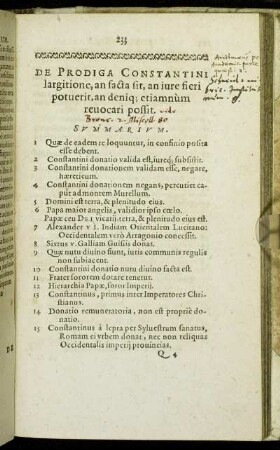 233
DE PRODIGA CONSTANTINI
largitione, an facta sit, an iure fieri
potuerit, an deniq; etiamnùm
reuocari possit.
SVMMARIVM.
1 Quæ de eadem re loquuntur, in confinio posita
esse debent.
2 Constantini donatio valida est, iureq; subsistit.
3 Constantini donationem validam esse, negare,
hæreticum.
4 Constantini donationem negans, percutiet ca-
put ad montem Murellum.
5 Domini est terra, & plenitudo eius.
6 Papa maior angelis, validior ipso cœlo.
Papæ ceu DEI vicarij terra, & plenitudo eius est.
7 Alexander VI. Indiam Orientalem Lusitano:
Occidentalem verò Arragonio concessit.
8 Sixtus V. Galliam Guisiis donat.
9 Quæ nutu diuino fiunt, iuris communis regulis
non subiacent.
10 Constantini donatio nutu diuino facta est.
11 Frater sororem dotare tenetur.
12 Hierarchia Papæ, soror Imperij.
13 Constantinus, primus inter Imperatores Chri-
stianus.
14 Donatio remuneratoria, non est propriè do-
natio.
15 Constantinus à lepra per Syluestrum sanatus,
Romam ei vrbem donat, nec non reliquas
Occidentalis imperij prouincias.
Q 4